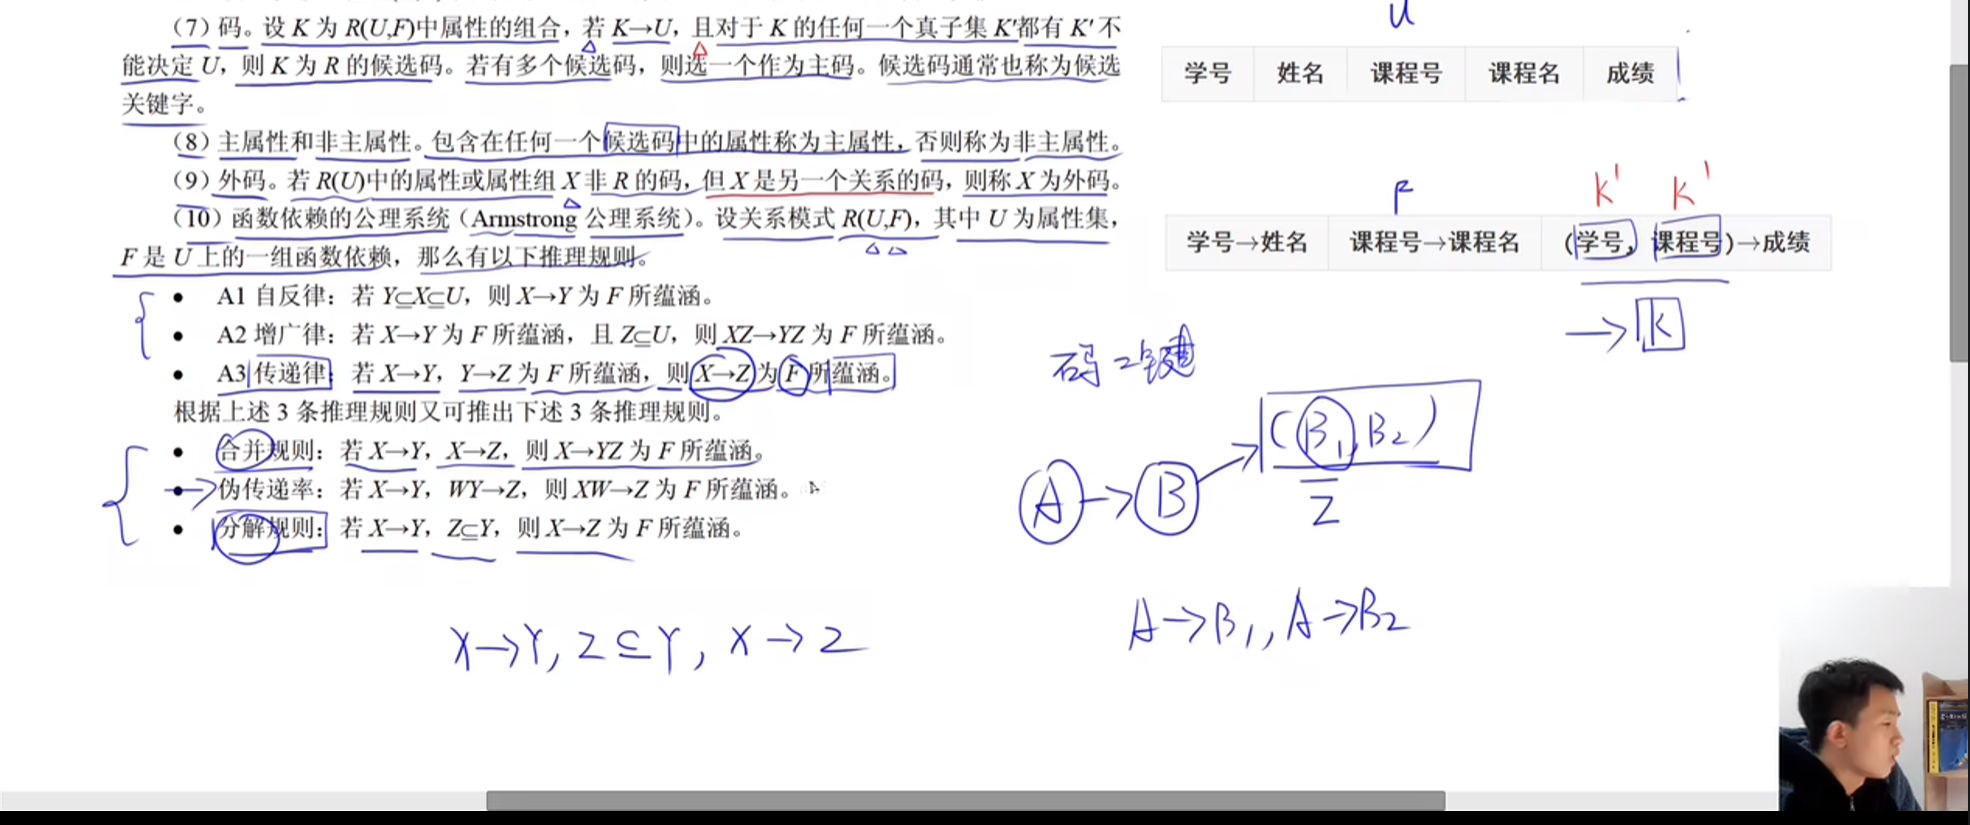 （7）码。设 K 为 R(U,F)中属性的组合，若 K→U，且对于 K 的任何一个真子集 K′都有 K′ 不
能决定 U，则 K 为 R 的候选码。若有多个候选码，则选一个作为主码。候选码通常也称为候选
关键字。
（8）主属性和非主属性。包含在任何一个候选码中的属性称为主属性，否则称为非主属性。
（9）外码。若 R(U)中的属性或属性组 X 非 R 的码，但 X 是另一个关系的码，则称 X 为外码。
（10）函数依赖的公理系统（Armstrong 公理系统）。设关系模式 R(U,F)，其中 U 为属性集，
F 是 U 上的一组函数依赖，那么有以下推理规则。
• A1 自反律：若 Y⊆X⊆U，则 X→Y 为 F 所蕴涵。
• A2 增广律：若 X→Y 为 F 所蕴涵，且 Z⊆U，则 XZ→YZ 为 F 所蕴涵。
• A3 传递律：若 X→Y，Y→Z 为 F 所蕴涵，则 X→Z 为 F 所蕴涵。
根据上述 3 条推理规则又可推出下述 3 条推理规则。
• 合并规则：若 X→Y，X→Z，则 X→YZ 为 F 所蕴涵。
• 伪传递率：若 X→Y，WY→Z，则 XW→Z 为 F 所蕴涵。
• 分解规则：若 X→Y，Z⊆Y，则 X→Z 为 F 所蕴涵。
X→Y, Z⊆Y, X→Z
U
学号 姓名 课程号 课程名 成绩
F K' K'
学号→姓名 课程号→课程名 (学号，课程号)→成绩
→K
码=键
A→B→(B1,B2)
Z
A→B1, A→B2